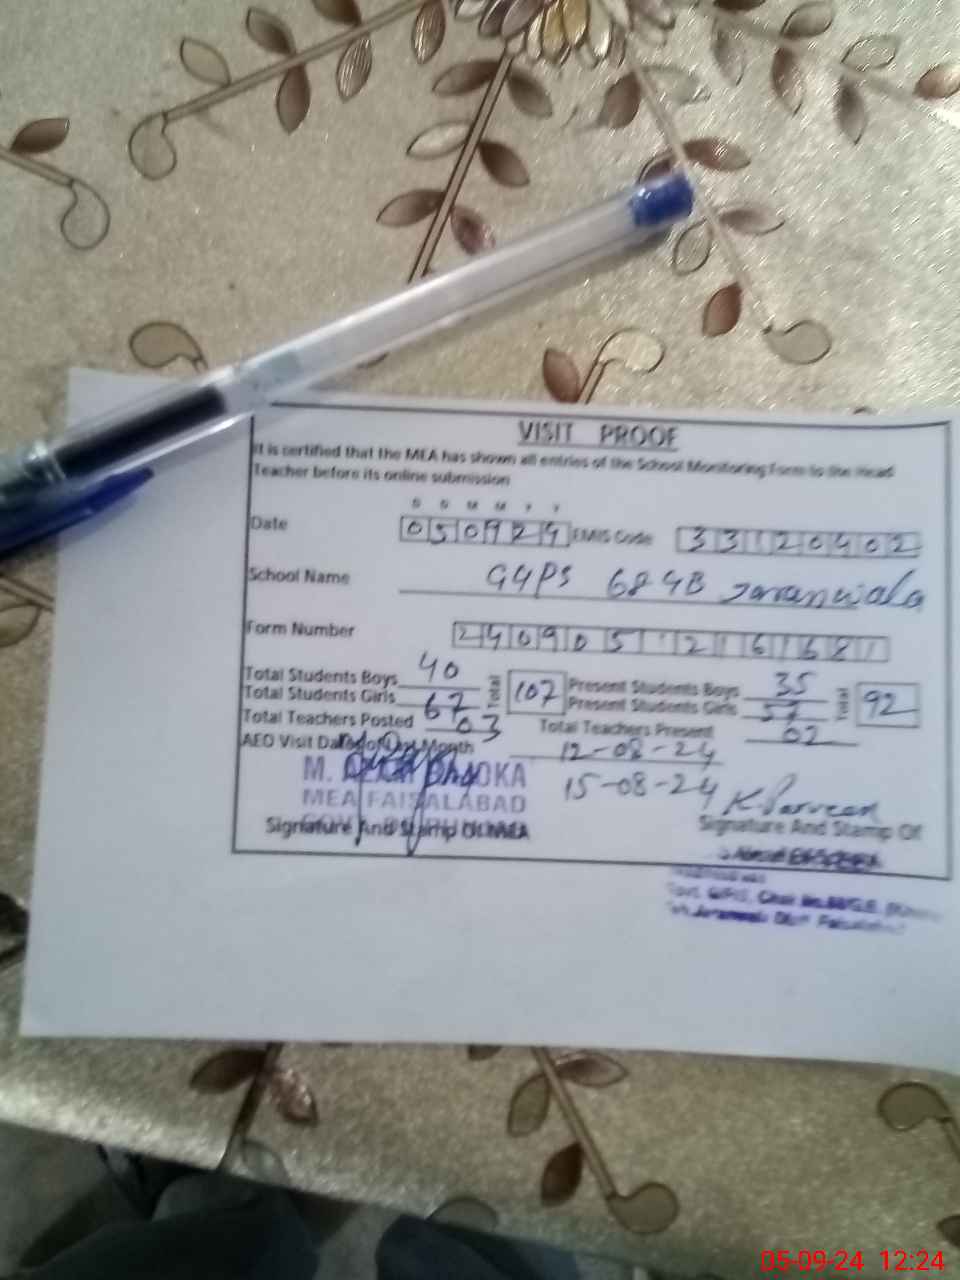 VISIT PROOF
It is certified that the MEA has shown all entries of the School Monitoring Form to the Head
Teacher before its online submission
D D M M Y Y
Date 050924 EMIS Code 33120402
School Name GGPS 68 GB Jaranwala
Form Number
Total Students Boys 40 Total 107 Present Students Boys 35 Total 92
Total Students Girls 67 Present Students Girls 57
Total Teachers Posted 03 Total Teachers Present 02
AEO Visit Dates of Last Month 12-08-24
15-08-24
M.
MEA FAISALABAD
Signature And Stamp Of MEA
K. Parveen
Signature And Stamp Of
05-09-24 12:24